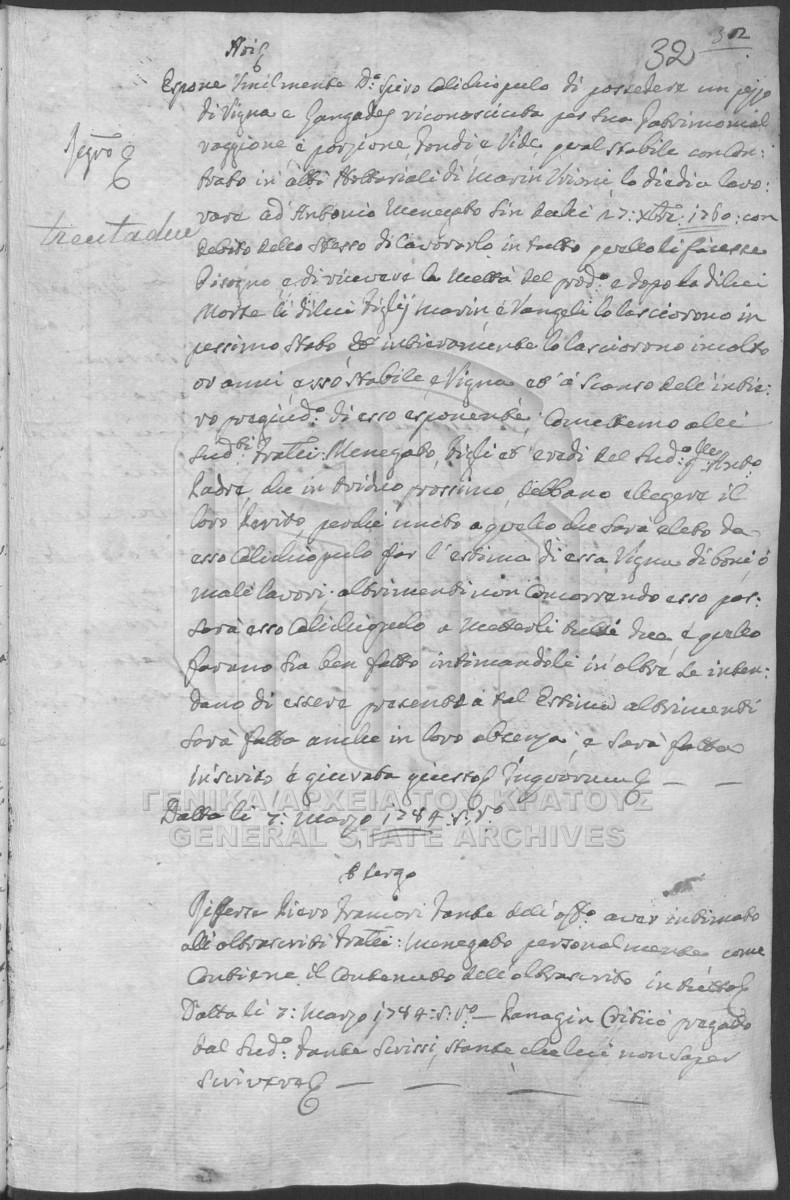 32 302
Noi
Espone Umilmente D.º Spiro Calichiopulo di possedere un pezzo
di Vigna e Zangades riconosciuta per sua Patrimonial
raggione e porzione, fondi, e Vide qual stabile con Con:
trato in atti Nottariali di Marin la diedi a lavo:
rare ad Antonio Menegato sin dalli 17: Xbre: 1760: con
debito dello stesso di lavorarlo in tutto quello li facesse
bisogno e di ricevere la mettà del prod.º e dopo la di lui
Morte li di lui figlij Marin, e Vangeli lo lasciorono in
pessimo stato, et intieramente lo lasciorono incolto
or anni, esso stabile, e Vigna et à scanso dell'intie:
ro pregiud.º di esso esponente, Comettemo alli
sud.ti Fratti: Menegato, figli et eredi del sud.º q.m Anto.º
Padre, che in triduo prossimo, debbano elegere il
loro Perito, perchè unito a quello che sarà eletto da
esso Calichiopulo far l'estima di essa Vigna di boni, ó
mali lavori. altrimenti non Concorrendo esso pas:
sarà esso Calichiopulo a metterli tutti due, e quello
farano sia ben fatto intimandoli in oltre se inten:
dano di essere presenti à tal Estima altrimenti
sarà fatta anche in loro absenza, e sarà fatta
in scrito, e giurata
Datta li 7: Marzo 1784. S: V.º
trentadue
Tergo
Rifferse Piero Fante dell'off.º aver intimato
alli oltrascritti Fratti: Menegato personalmente come
Contiene il Contenuto dell'oltrascrito in tutto
Datta li 7: Marzo 1784: S: V.º — Panagin Criticó pregato
dal sud.º Fante scrissi, stante che lui non saper
scrivere — — — —
ΓΕΝΙΚΑ ΑΡΧΕΙΑ ΤΟΥ ΚΡΑΤΟΥΣ
GENERAL STATE ARCHIVES